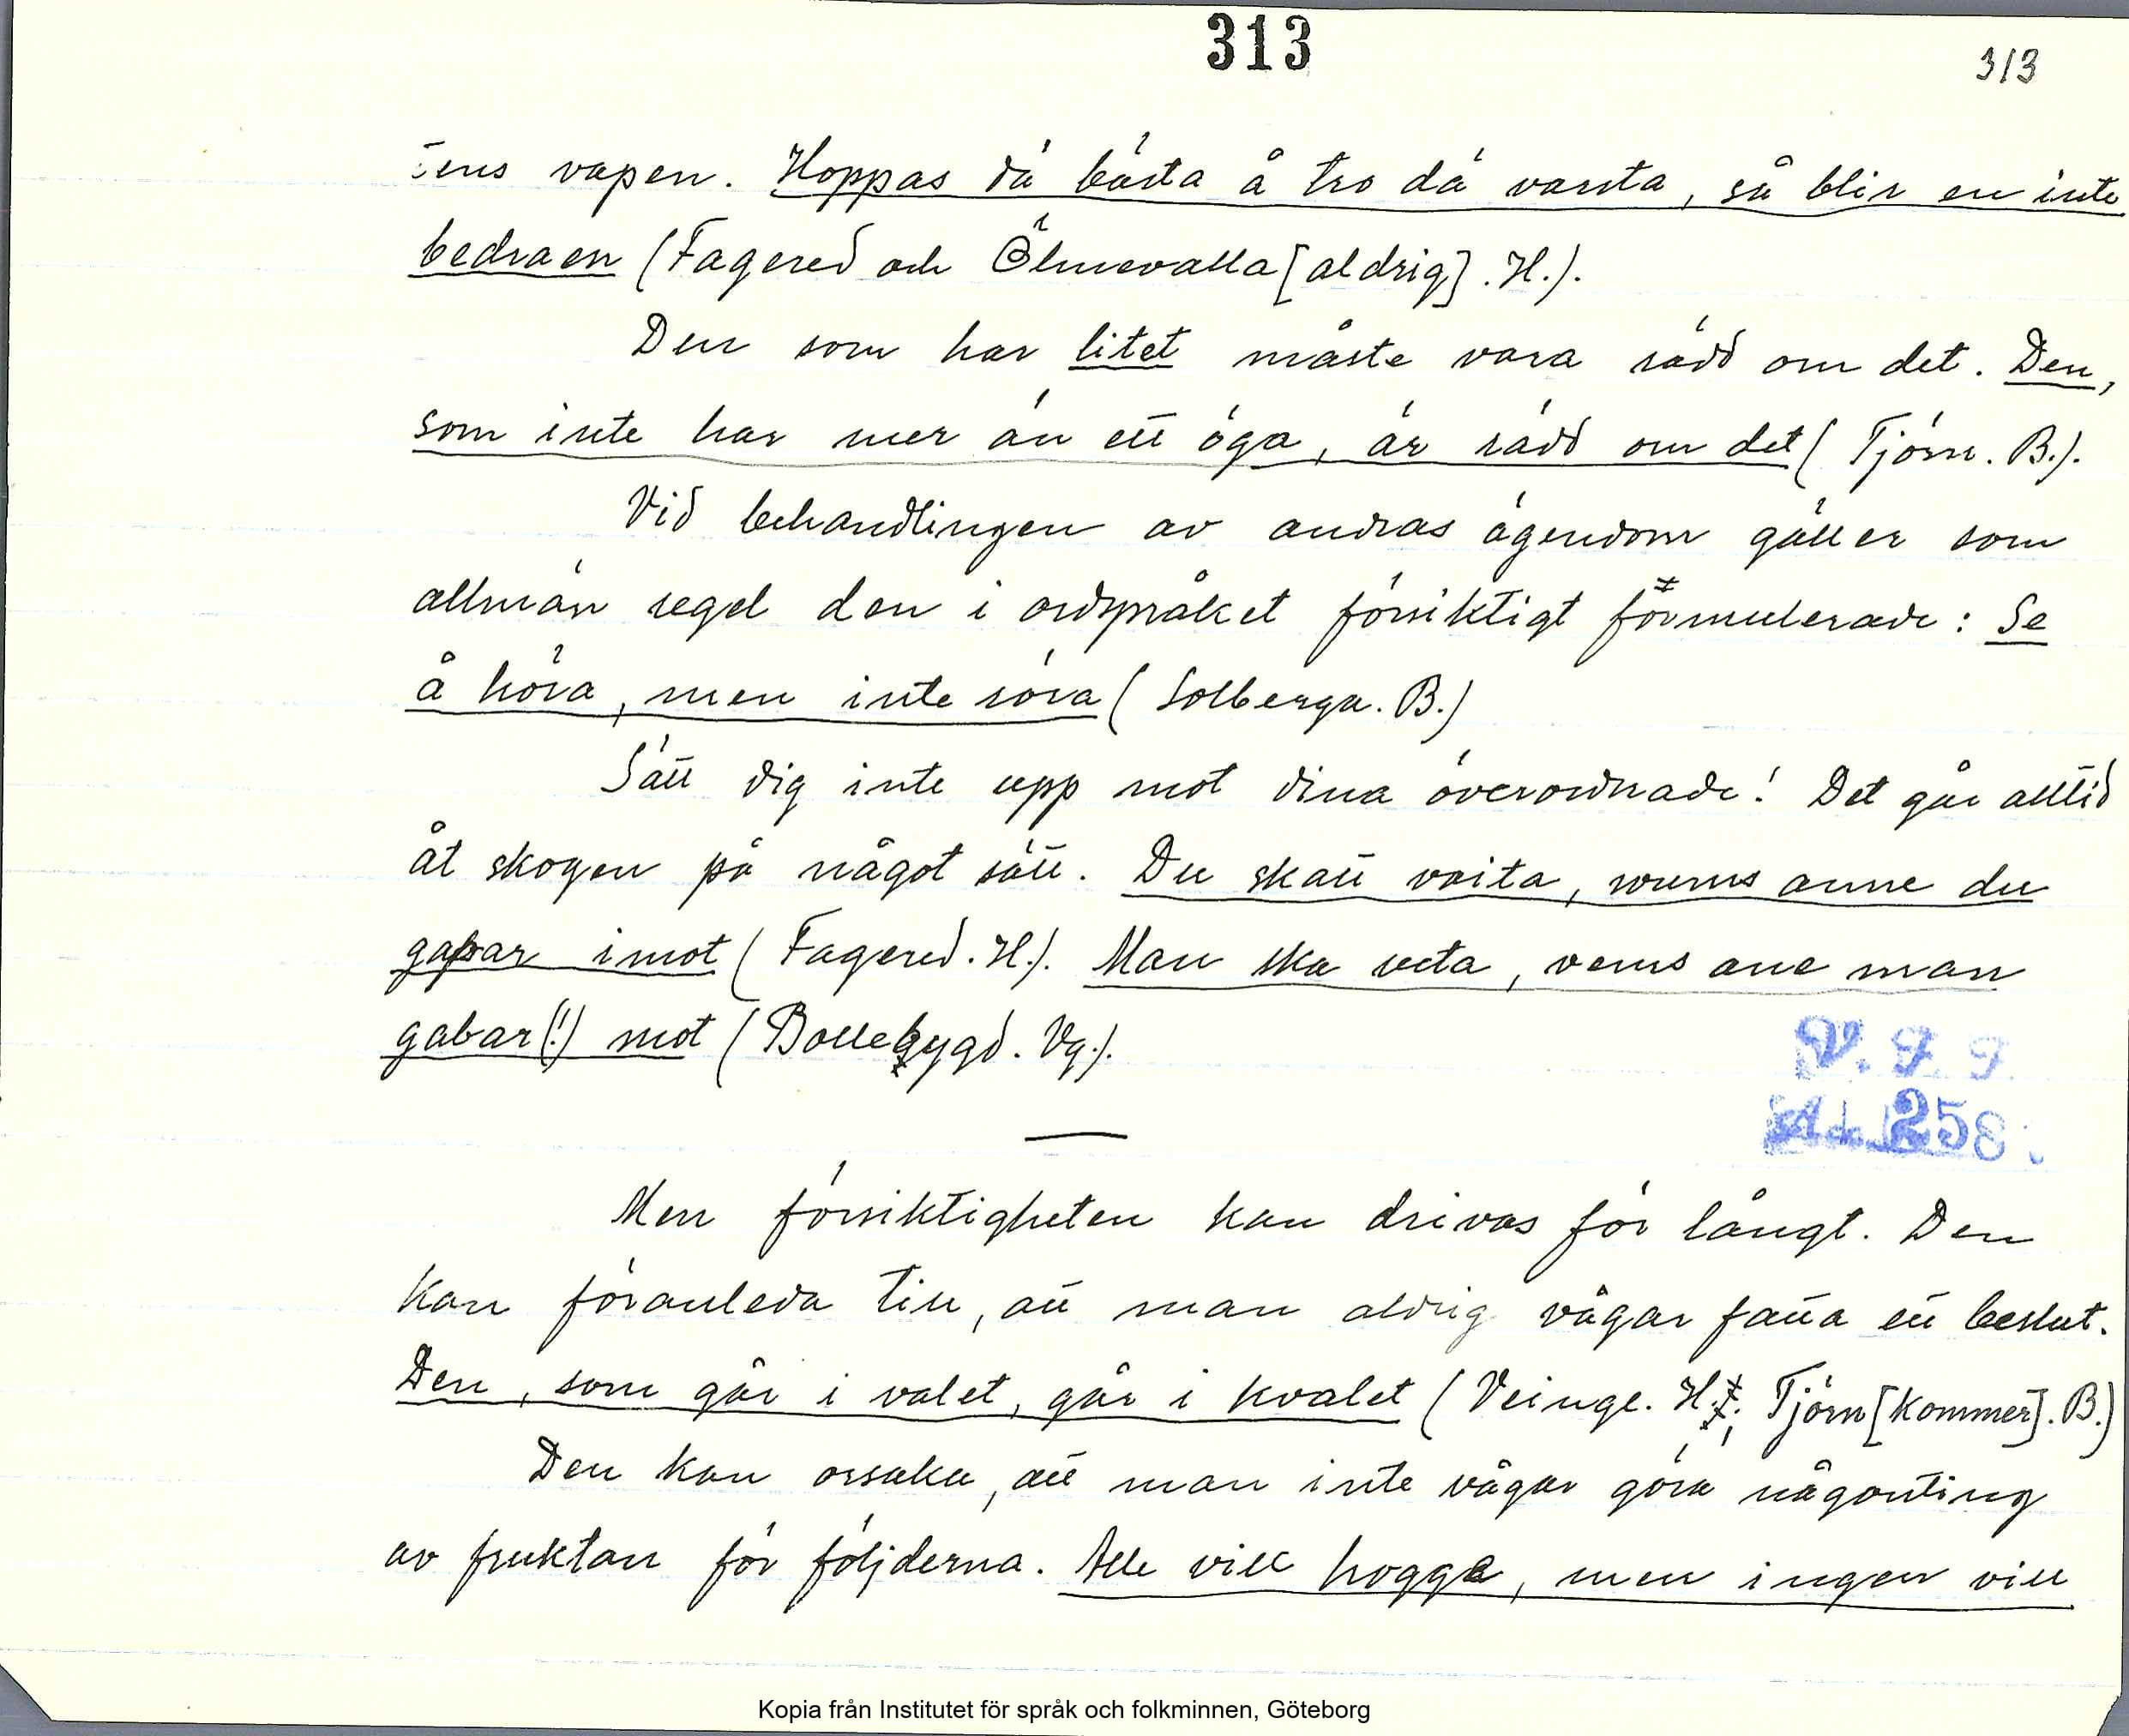 313
313
tens vapen. Hoppas dä bästa å tro dä varsta, så blir en inte
bedraen (Fagered och Ölmevalla [aldrig]. H.).
Den som har litet måste vara rädd om det. Den,
som inte har mer än ett öga, är rädd om det (Tjörn. B.).
Vid behandlingen av andras ägendom gäller som
allmän regel den i ordspråket försiktigt formulerade: Se
å höra, men inte röra (Solberga. B.)
Sätt dig inte upp mot dina överordnade! Det går alltid
åt skogen på något sätt. Du skall vaita, wums anne du
gapar imot (Fagered. H.). Man ska veta, vems ane man
gabar(!) mot (Bollebygd. Vg.).
V. F. F.
258.
Men försiktigheten kan drivas för långt. Den
kan föranleda till, att man aldrig vågar fatta ett beslut.
Den, som går i valet, går i kvalet (Veinge. H.; Tjörn [kommer]. B.)
Den kan orsaka, att man inte vågar göra någonting
av fruktan för följderna. Alle vill hogga, men ingen vill
Kopia från Institutet för språk och folkminnen, Göteborg